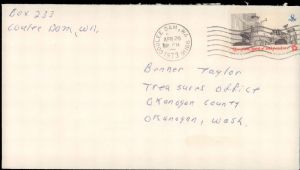 Box 233
Coulee Dam, Wn,
COULEE DAM, WA
APR 26
PM
1973
Bonner Taylor
Treasures Office
Okanogan County
Okanogan, Wash.